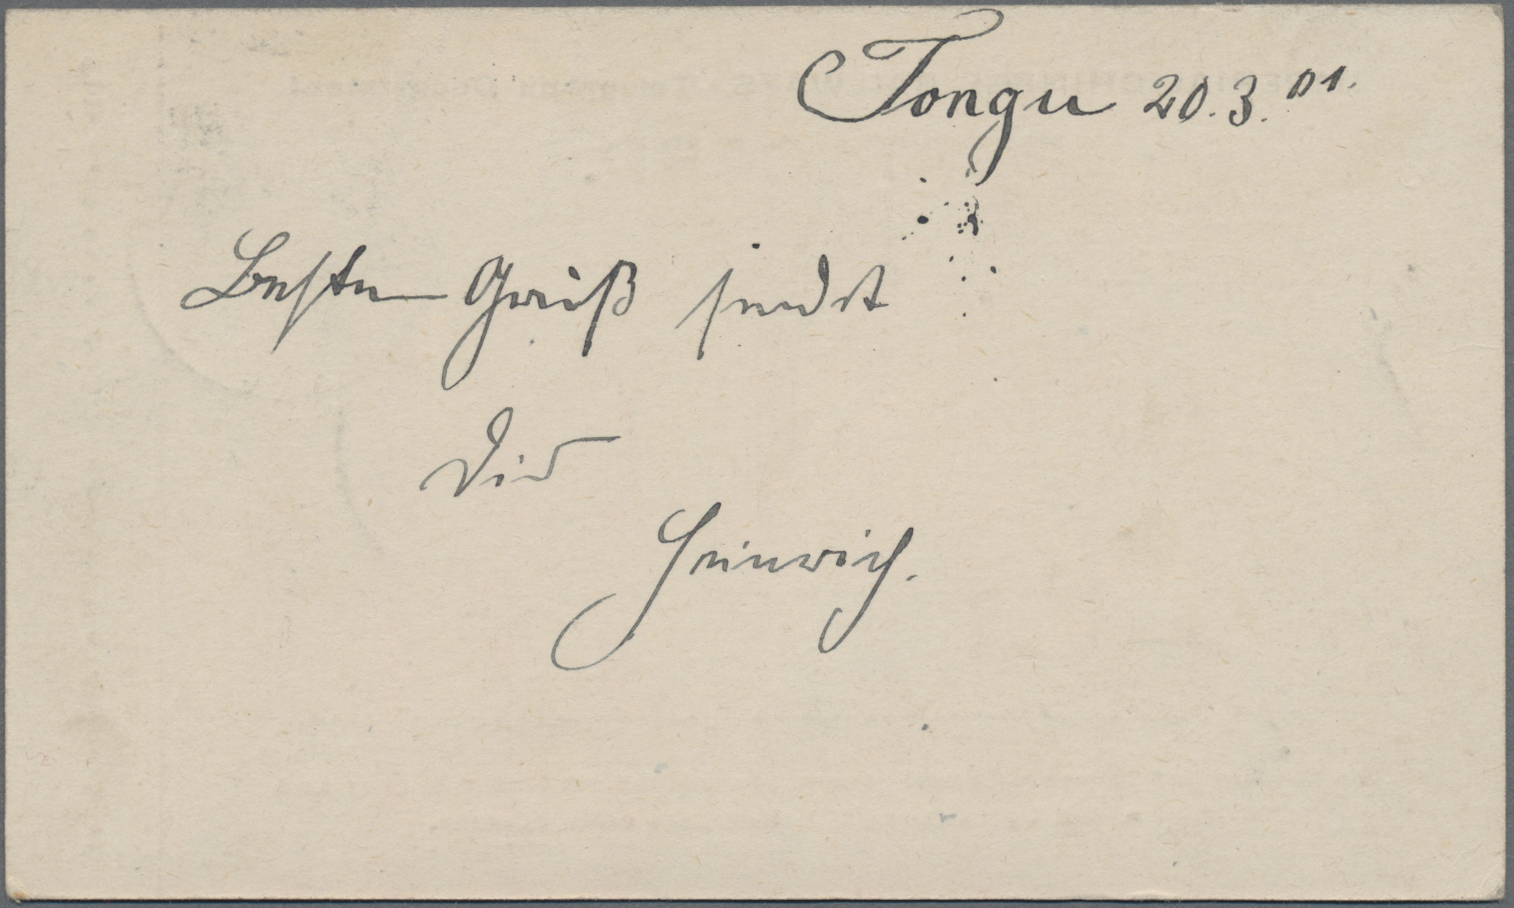 Tongu 20.3.01.
Besten Gruß sendet
Dir
Heinrich.